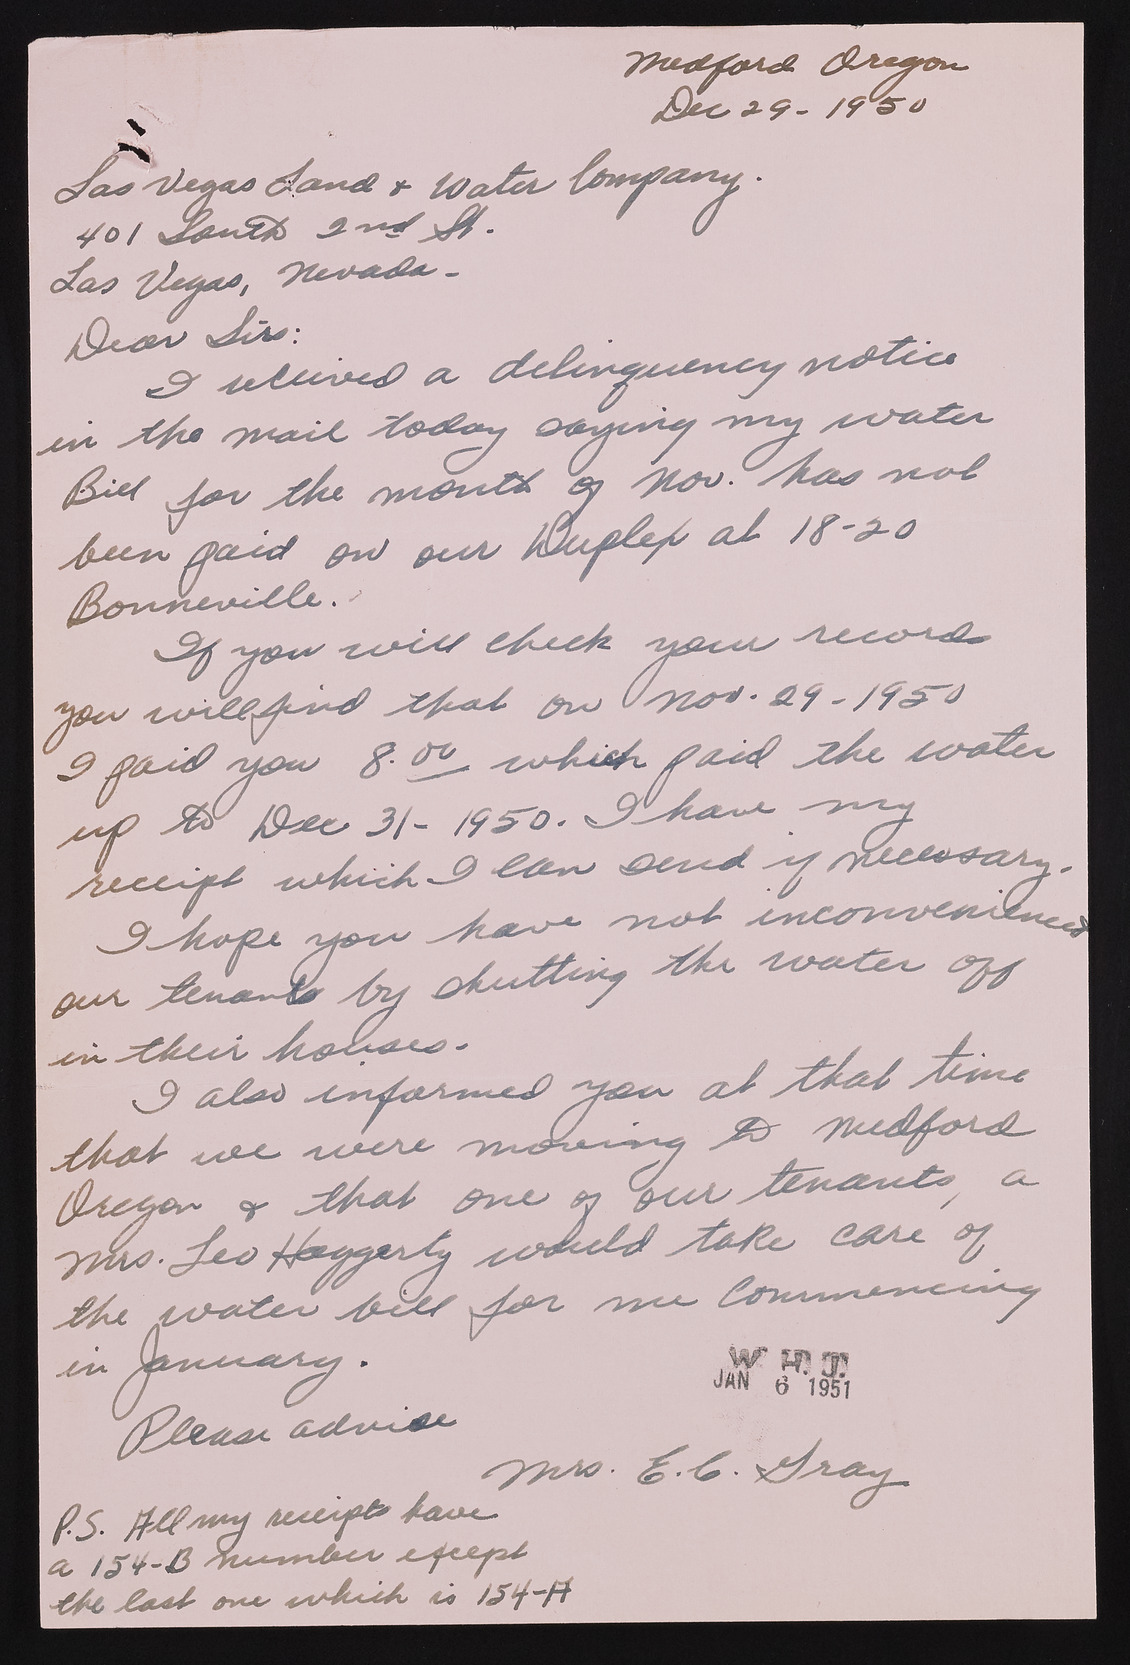 Medford Oregon
Dec 29 - 1950
Las Vegas Land & Water Company.
401 South 2nd St.
Las Vegas, Nevada -
Dear Sirs:
I received a delinquency notice
in the mail today saying my water
Bill for the month of Nov. has not
been paid on our Duplex at 18-20
Bonneville.
If you will check your record
you will find that on Nov. 29 - 1950
I paid you 8.00 which paid the water
up to Dec 31 - 1950. I have my
receipt which I can send if necessary.
I hope you have not inconvenienced
our tenants by shutting the water off
in their houses.
I also informed you at that time
that we were moving to Medford
Oregon & that one of our tenants, a
Mrs. Leo Haggerty would take care of
the water bill for me commencing
in January.
W. H. J.
JAN 6 1951
Please advise
Mrs. E. C. Gray
P.S. All my receipts have
a 154-B number except
the last one which is 154-A